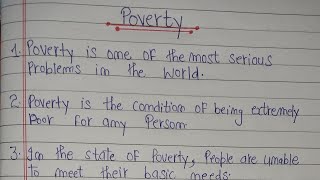 Poverty
1. Poverty is one of the most serious
Problems in the World.
2. Poverty is the condition of being extremely
Poor for any Person
3. In the state of Poverty, People are unable
to meet their basic needs.